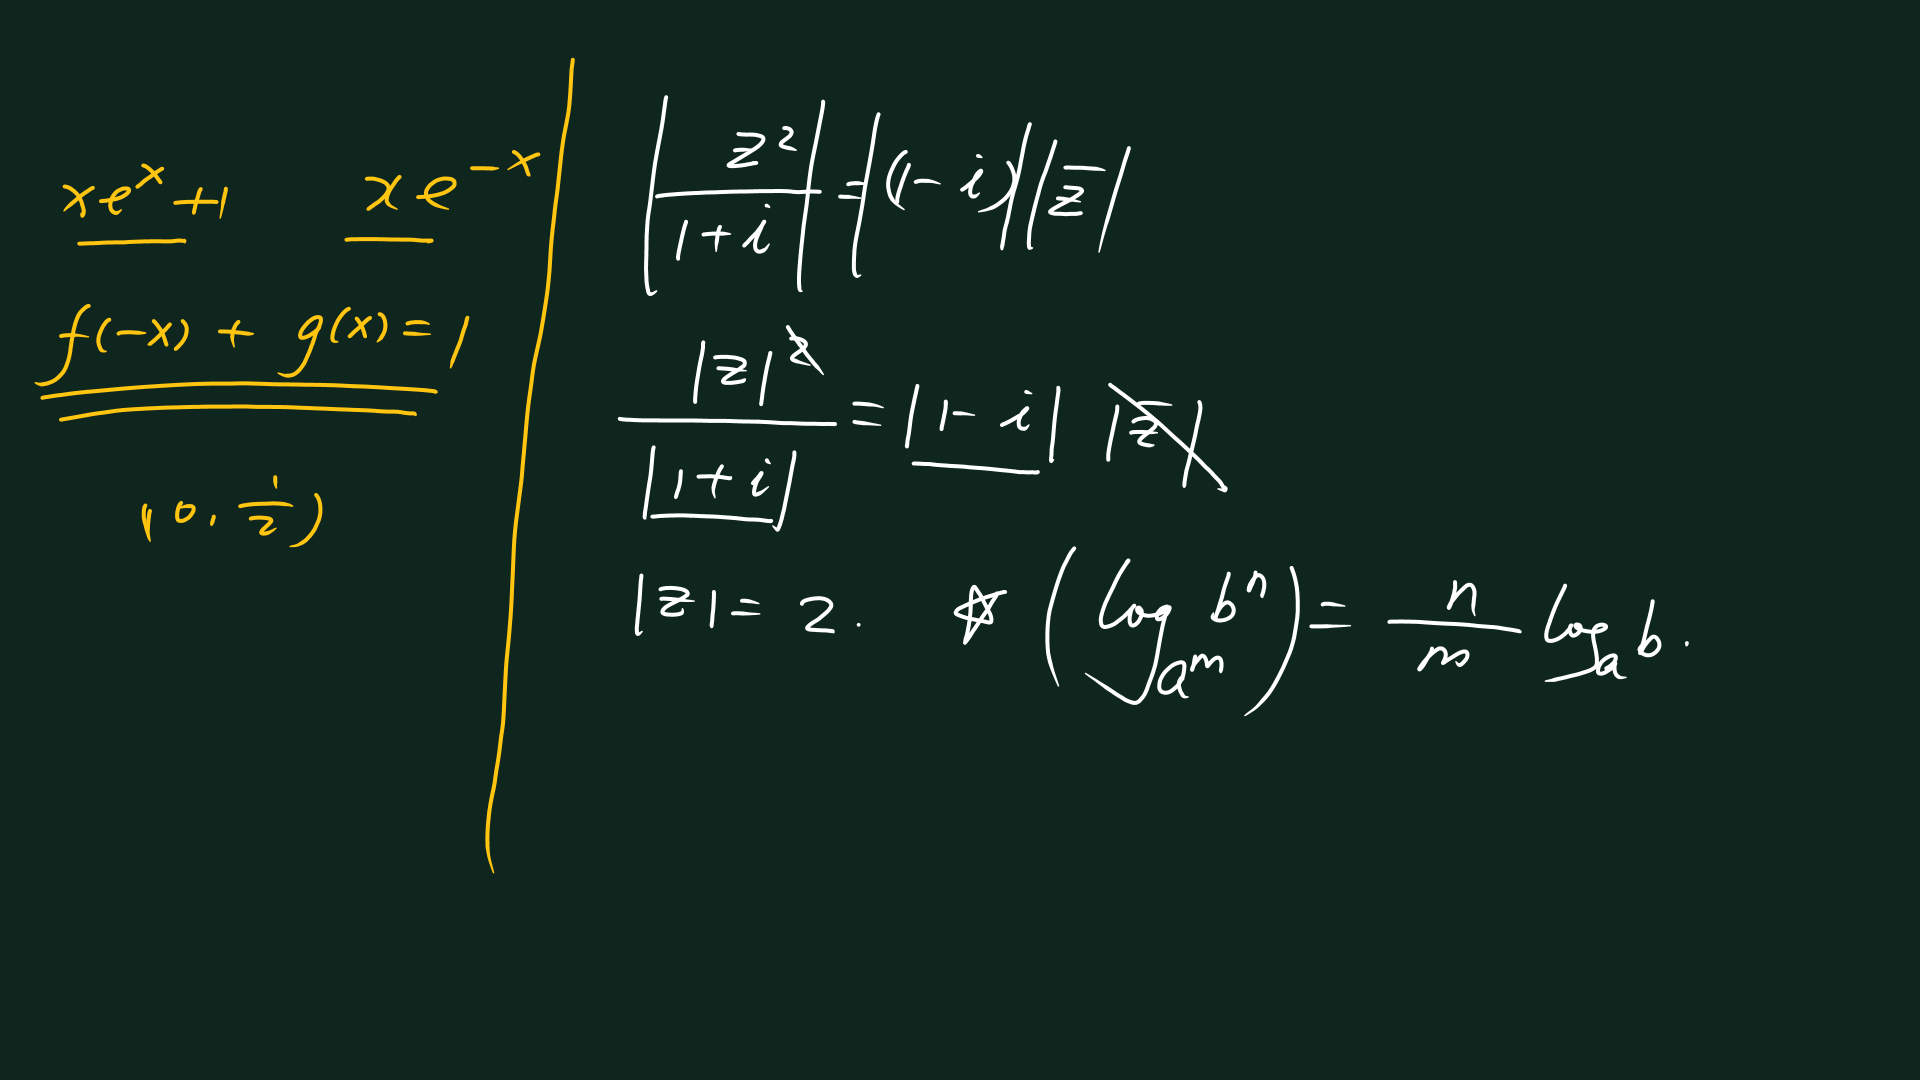 xe^x +1    xe^{-x}
f(-x) + g(x) = 1
(0, 1/2)
|z²/(1+i)| = |(1-i)||z̄|
|z|²/|1+i| = |1-i| |z̄|
|z| = 2.  ☆ (log_{a^m} b^n) = n/m log_a b.